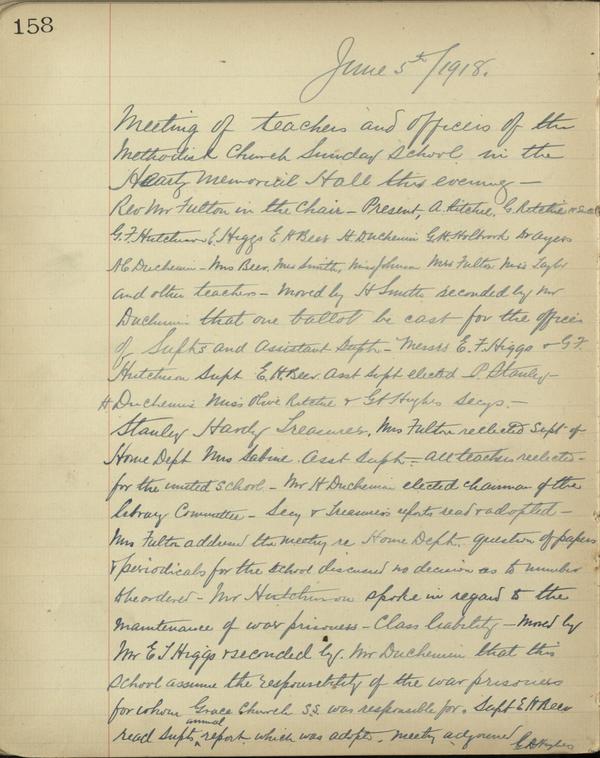 158
June 5th/1918.
Meeting of teachers and officers of the
Methodist Church Sunday School in the
Heartz Memorial Hall this evening –
Rev Mr Fulton in the Chair – Present, A. Ritchie,
G. F. Hutcheson E. Higgs E H Beer H. Duchemin G. H. Holbrook Dr Ayers
A E Duchemin – Mrs Beer, Mrs Smith, Miss Johnson Mrs Fulton Miss Taylor
and other teachers – Moved by H Smith seconded by Mr
Duchemin that one ballot be cast for the offices
of Supts and Assistant Supts – Messrs E. F. Higgs & G F.
Hutcheson Supt E. H. Beer Asst Supt elected P. Stanley –
H Duchemin Miss Olive Ritchie & G H Hughes Secys. –
Stanley Hardy Treasurer, Mrs Fulton reelected Supt of
Home Dept Mrs Sabine Asst Supt – all teachers reelected –
for the united school – Mr H Duchemin elected chairman of the
library Committee – Secy & Treasurers reports read & adopted –
Mrs Fulton address the meeting re Home Dept. question of papers
& periodicals for the school discussed no decision as to number
to be ordered – Mr Hutcheson spoke in regard to the
maintenance of war prisoners – Class liability – Moved by
Mr E F Higgs & seconded by Mr Duchemin that this
School assume the responsibility of the war prisoners
for whom Grace Church S.S. was responsible for. Supt E H Beer
read Supts annual report which was adopts. meeting adjourned
G H Hughes